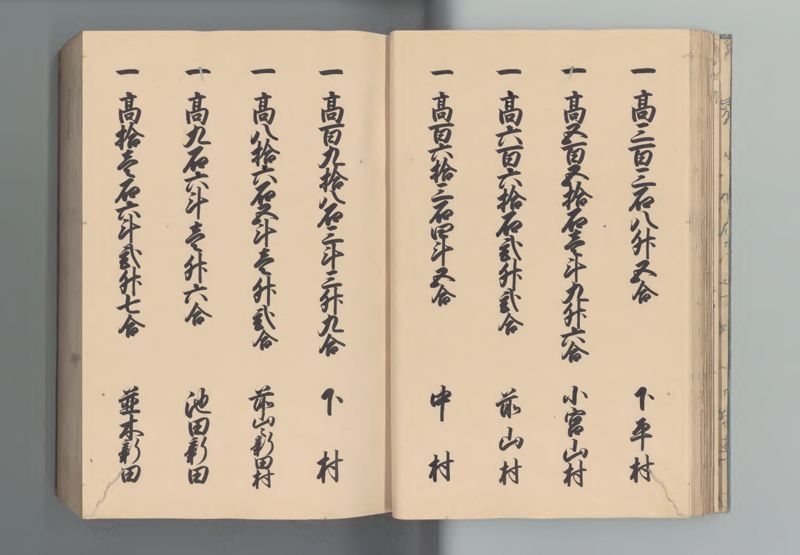 一 高三百三石八升五合 下平村
一 高五百五拾石壱斗九升六合 小宮山村
一 高六百六拾石弐升弐合 前山村
一 高百六拾三石四斗五合 中村
一 高百九拾八石三斗三升九合 下村
一 高八拾六石五斗壱升弐合 前山新田村
一 高九石六斗壱升六合 池田新田
一 高拾壱石六斗弐升七合 並木新田